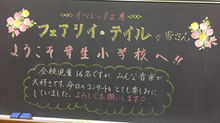 オペレッタ工房
フェアリィ・テイルの皆さん
ようこそ菅生小学校へ!!
全校児童14名ですが、みんな音楽が
大好きです。今日のコンサートをとても楽しみに
していました。よろしくお願いします。